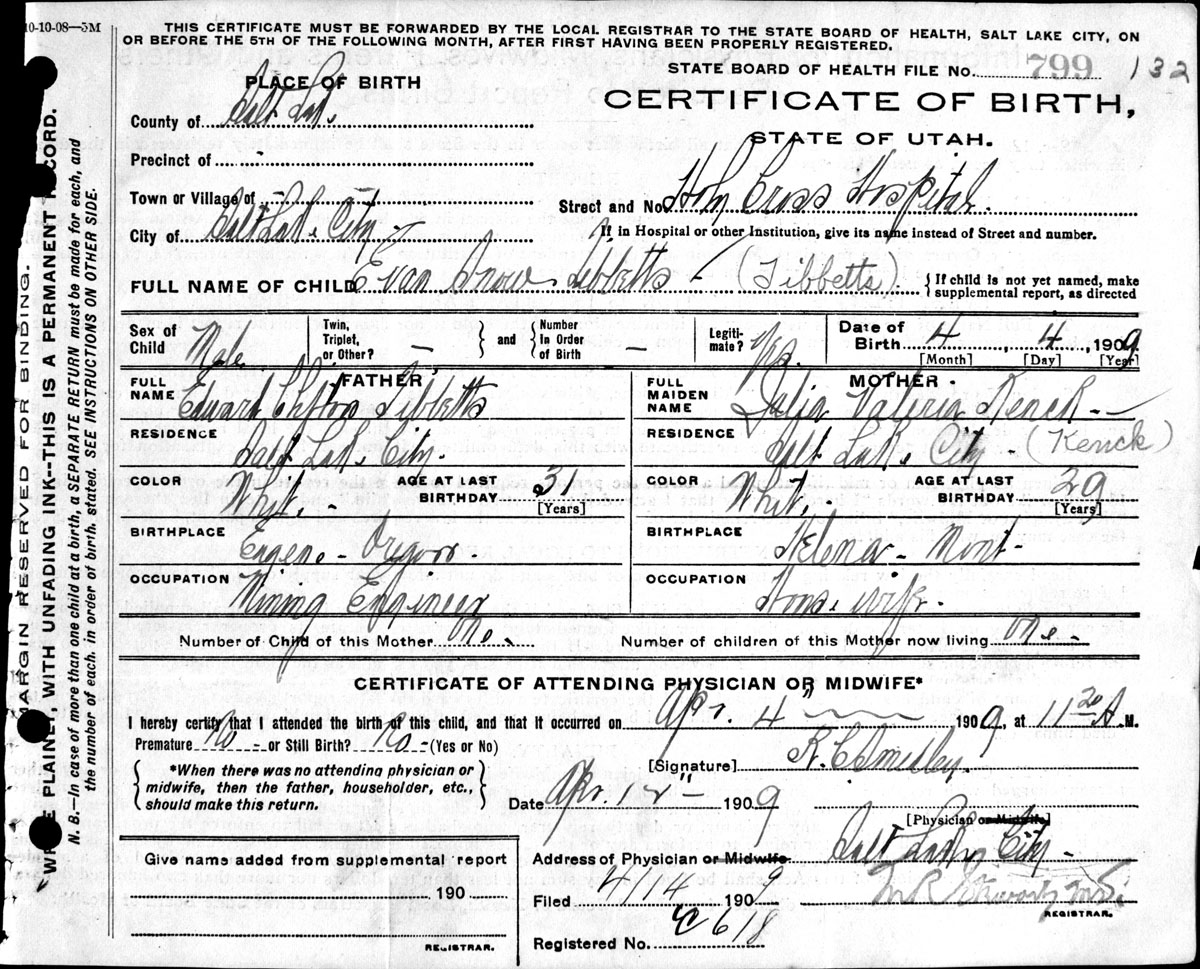 10-10-08—5M
THIS CERTIFICATE MUST BE FORWARDED BY THE LOCAL REGISTRAR TO THE STATE BOARD OF HEALTH, SALT LAKE CITY, ON
OR BEFORE THE 5TH OF THE FOLLOWING MONTH, AFTER FIRST HAVING BEEN PROPERLY REGISTERED.
PLACE OF BIRTH
STATE BOARD OF HEALTH FILE No. 799 132
CERTIFICATE OF BIRTH,
STATE OF UTAH.
County of Salt Lake
Precinct of -
Town or Village of -
Street and No. Holy Cross Hospital.
City of Salt Lake City -
If in Hospital or other Institution, give its name instead of Street and number.
FULL NAME OF CHILD Evan Snow Tibbetts - (Tibbetts)
{ If child is not yet named, make
supplemental report, as directed
Sex of Child Male
Twin, Triplet, or Other? - } and { Number In Order of Birth -
Legiti-mate? Yes
Date of Birth 4, 4, 1909
[Month] [Day] [Year]
FATHER
FULL NAME Edward Clifton Tibbetts
MOTHER
FULL MAIDEN NAME Julia Valeria Kenck -
RESIDENCE Salt Lake City.
RESIDENCE Salt Lake City - (Kenck)
COLOR White. AGE AT LAST BIRTHDAY 31 [Years]
COLOR White. AGE AT LAST BIRTHDAY 29 [Years]
BIRTHPLACE Eugene - Oregon
BIRTHPLACE Helena - Mont -
OCCUPATION Mining Engineer
OCCUPATION House wife.
Number of Child of this Mother One - Number of children of this Mother now living One -
CERTIFICATE OF ATTENDING PHYSICIAN OR MIDWIFE*
I hereby certify that I attended the birth of this child, and that it occurred on Apr. 4" 1909, at 11 20 A M.
Premature No - or Still Birth? No - (Yes or No)
{ *When there was no attending physician or
midwife, then the father, householder, etc.,
should make this return. }
[Signature] R. C. Smedley
Date Apr. 12" 1909
[Physician or Midwife]
Give name added from supplemental report
190
REGISTRAR.
Address of Physician or Midwife Salt Lake City -
Filed 4/14 1909
REGISTRAR.
Registered No. C 618
MARGIN RESERVED FOR BINDING.
WRITE PLAINLY, WITH UNFADING INK--THIS IS A PERMANENT RECORD.
N. B.—In case of more than one child at a birth, a SEPARATE RETURN must be made for each, and
the number of each, in order of birth, stated. SEE INSTRUCTIONS ON OTHER SIDE.